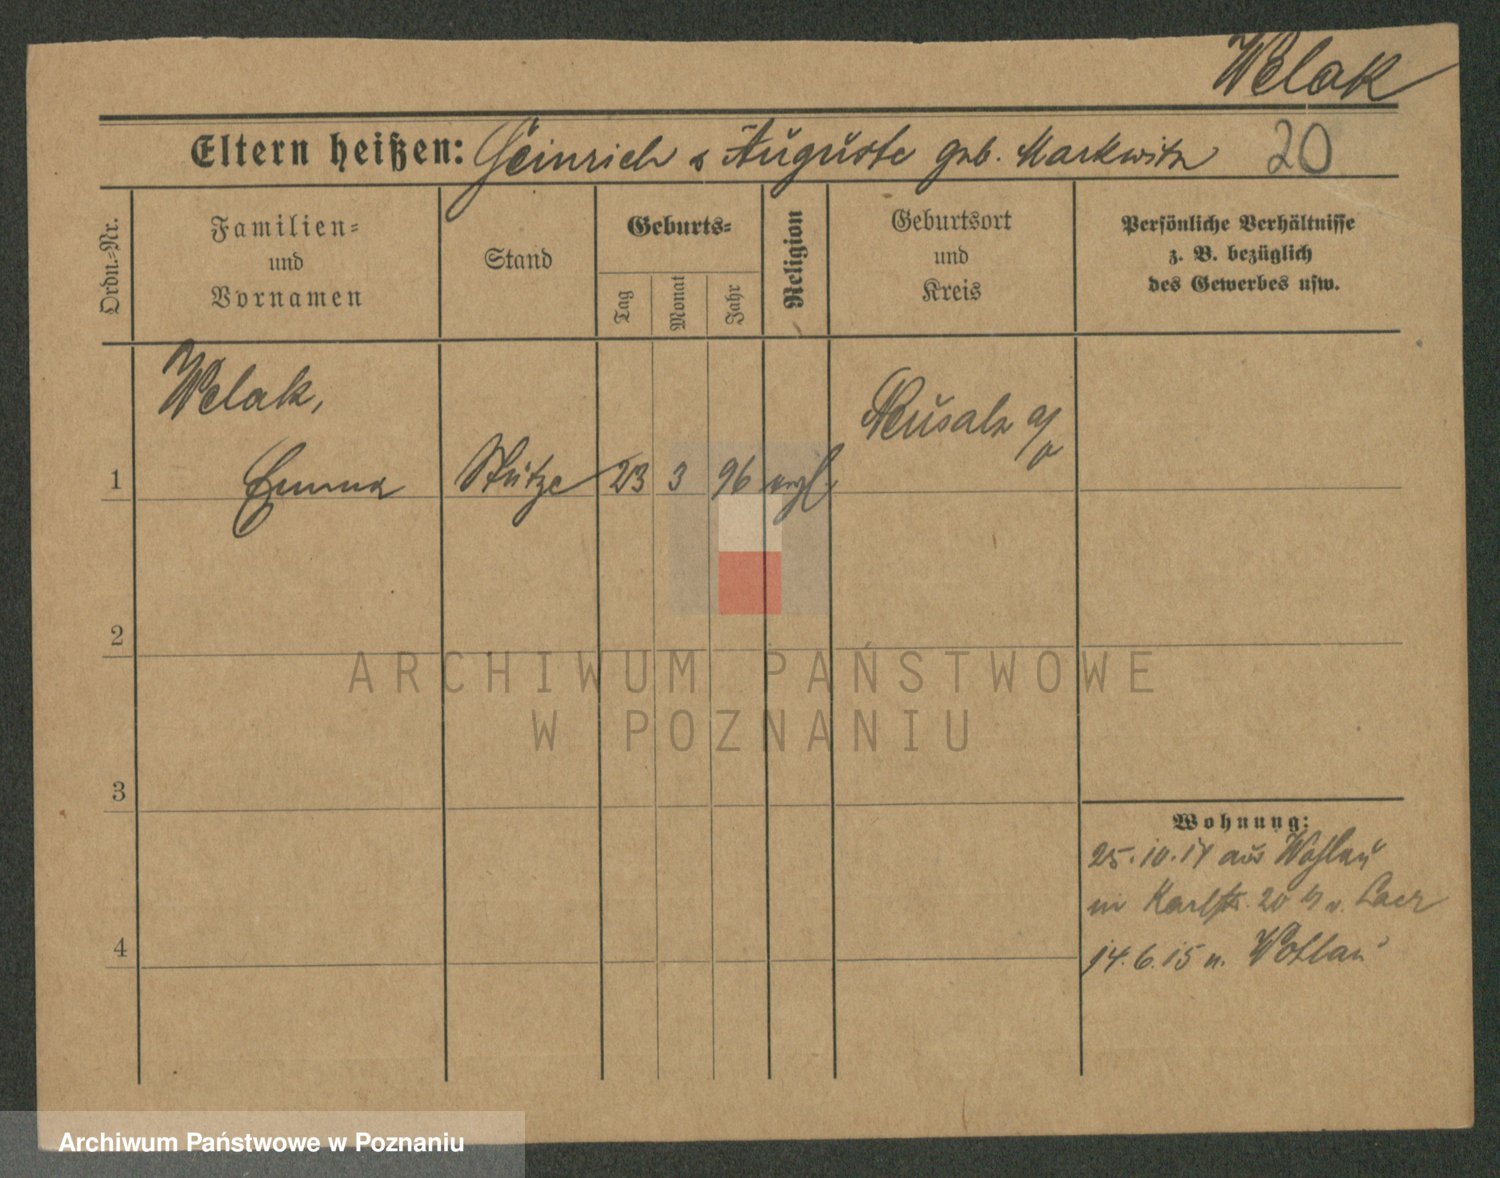 Welak
Eltern heißen: Heinrich & Auguste geb. Markwitz 20
Ordn.-Nr.
Familien-
und
Vornamen
Stand
Geburts-
Tag
Monat
Jahr
Religion
Geburtsort
und
Kreis
Persönliche Verhältnisse
z. B. bezüglich
des Gewerbes usw.
Welak,
Neusalz a/O
1 Emma Stütze 23 3 96 evgl.
2
ARCHIWUM PAŃSTWOWE
W POZNANIU
3
Wohnung:
25.10.14 aus Wohlau
in Karlstr. 20 v. Laer
4
14.6.15 n. Wohlau
Archiwum Państwowe w Poznaniu